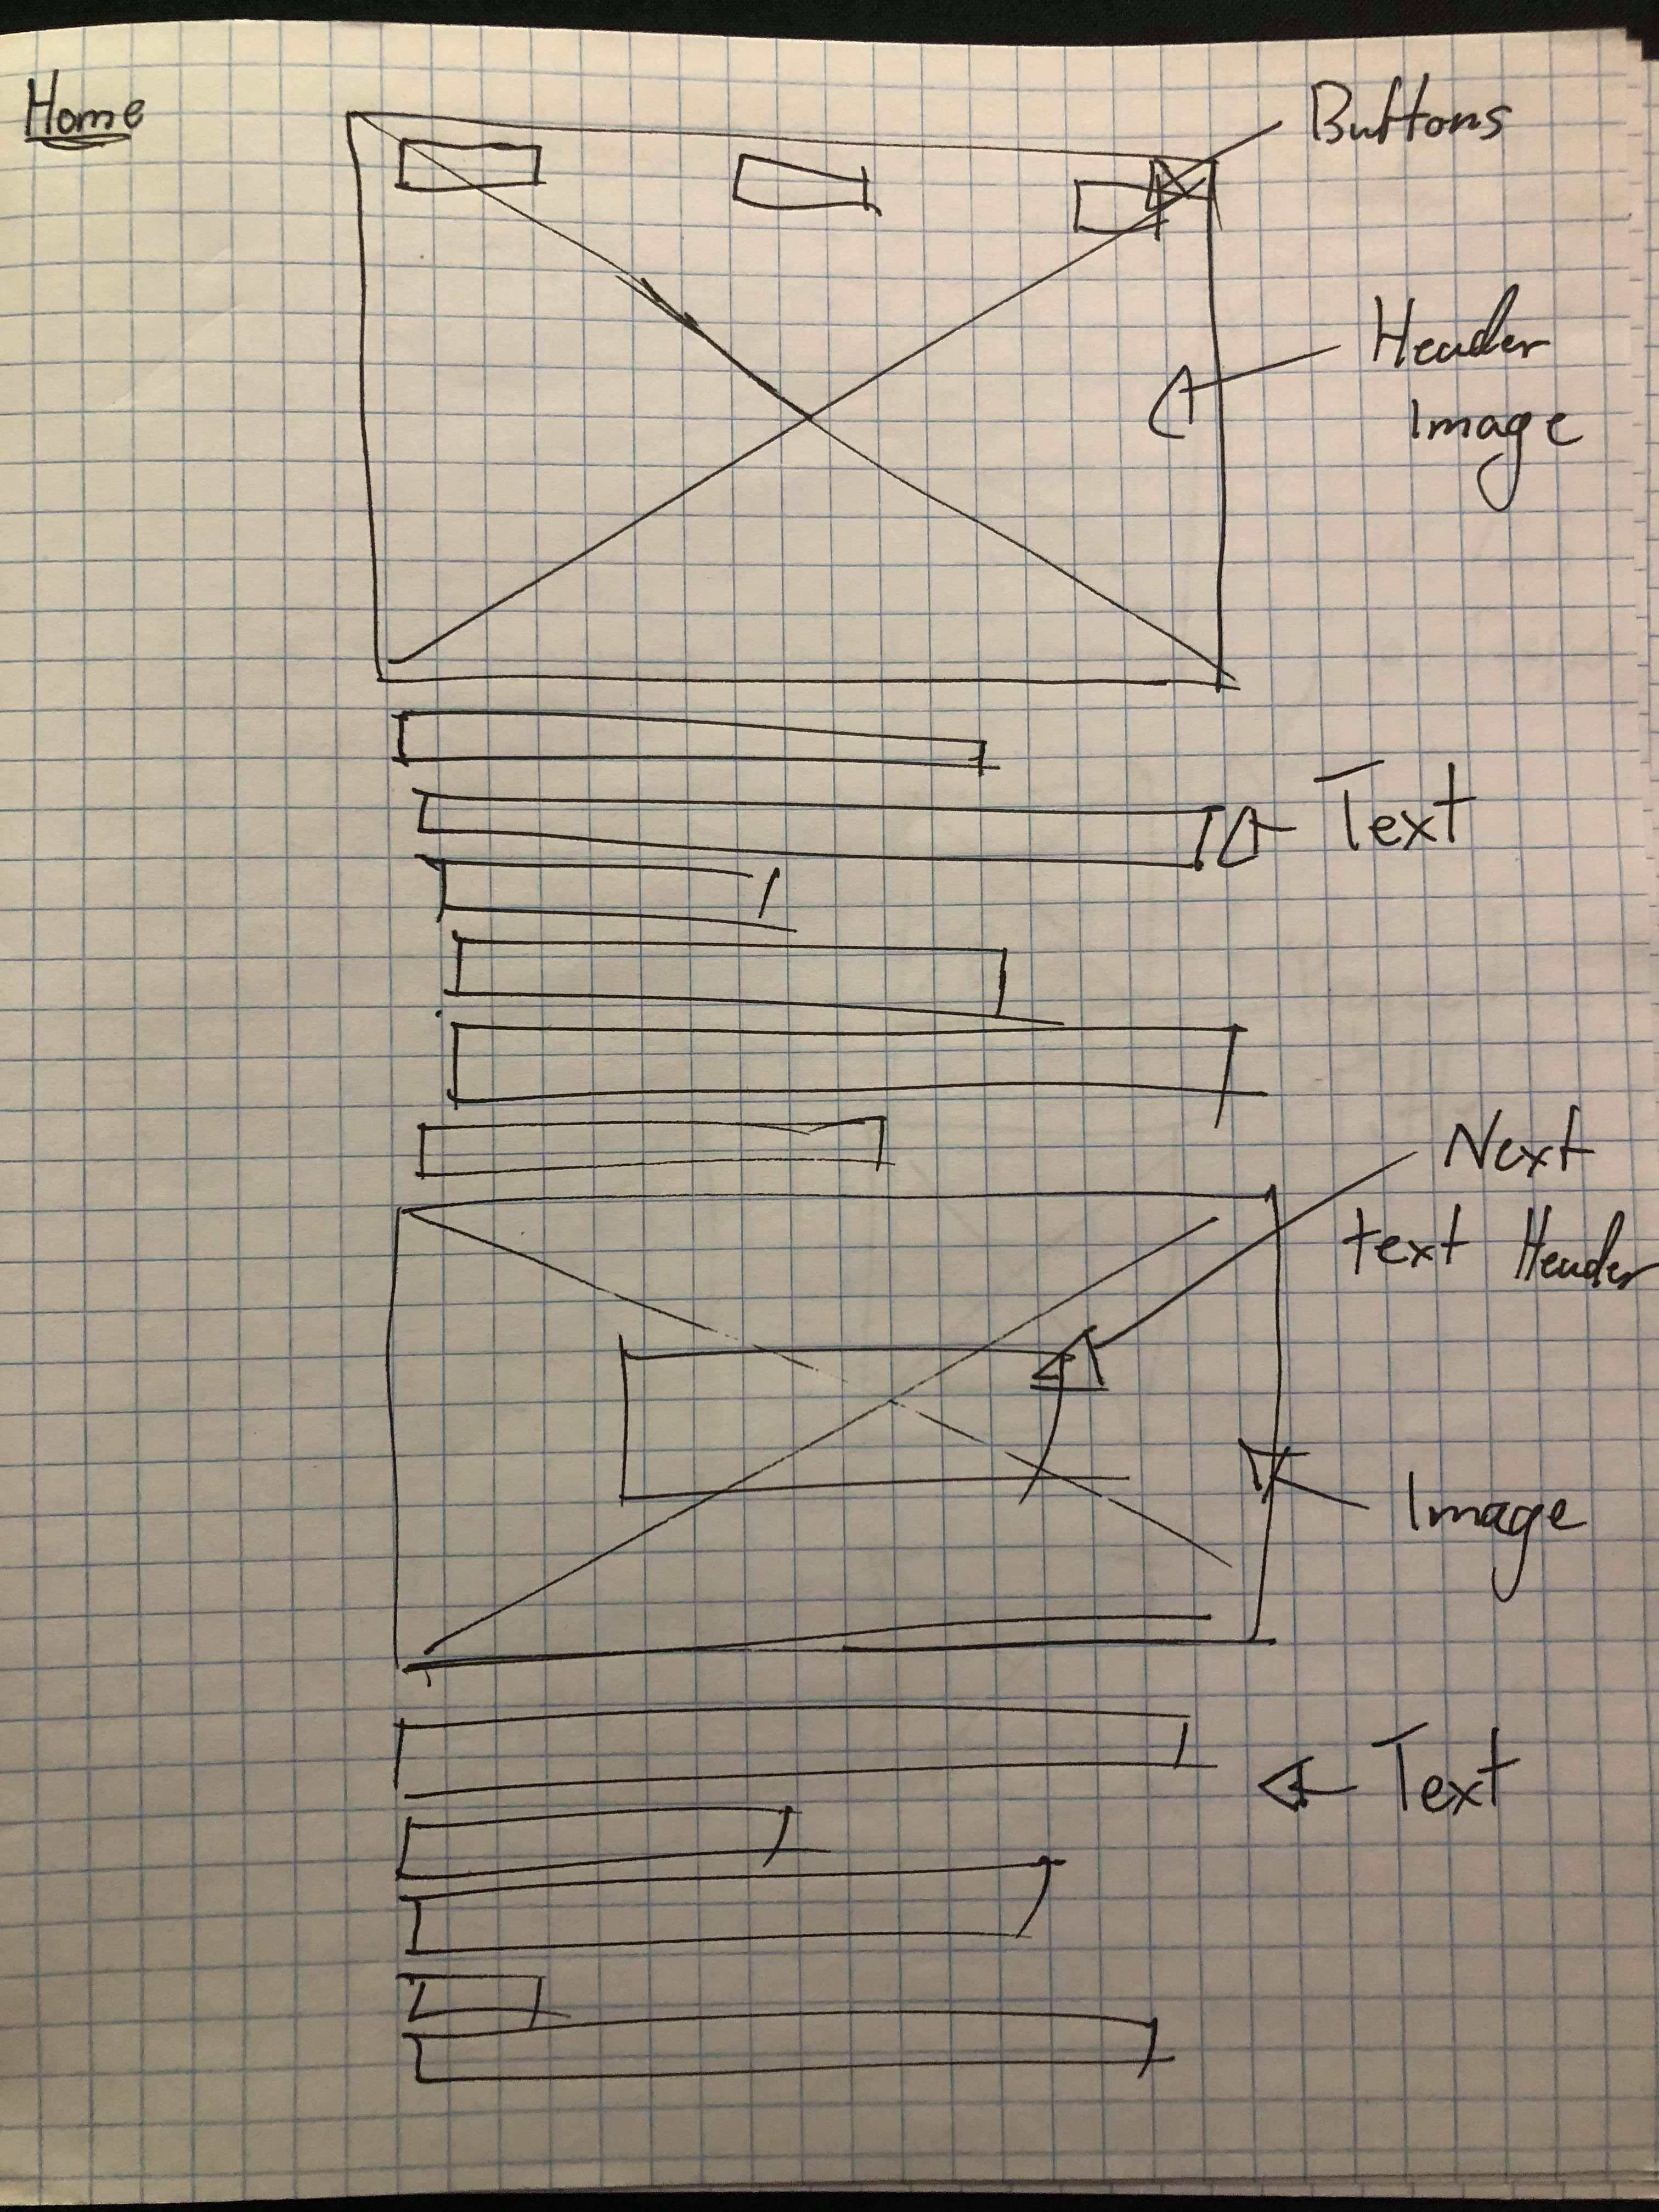 Home
Buttons
Header
Image
Text
Next
text Header
Image
Text